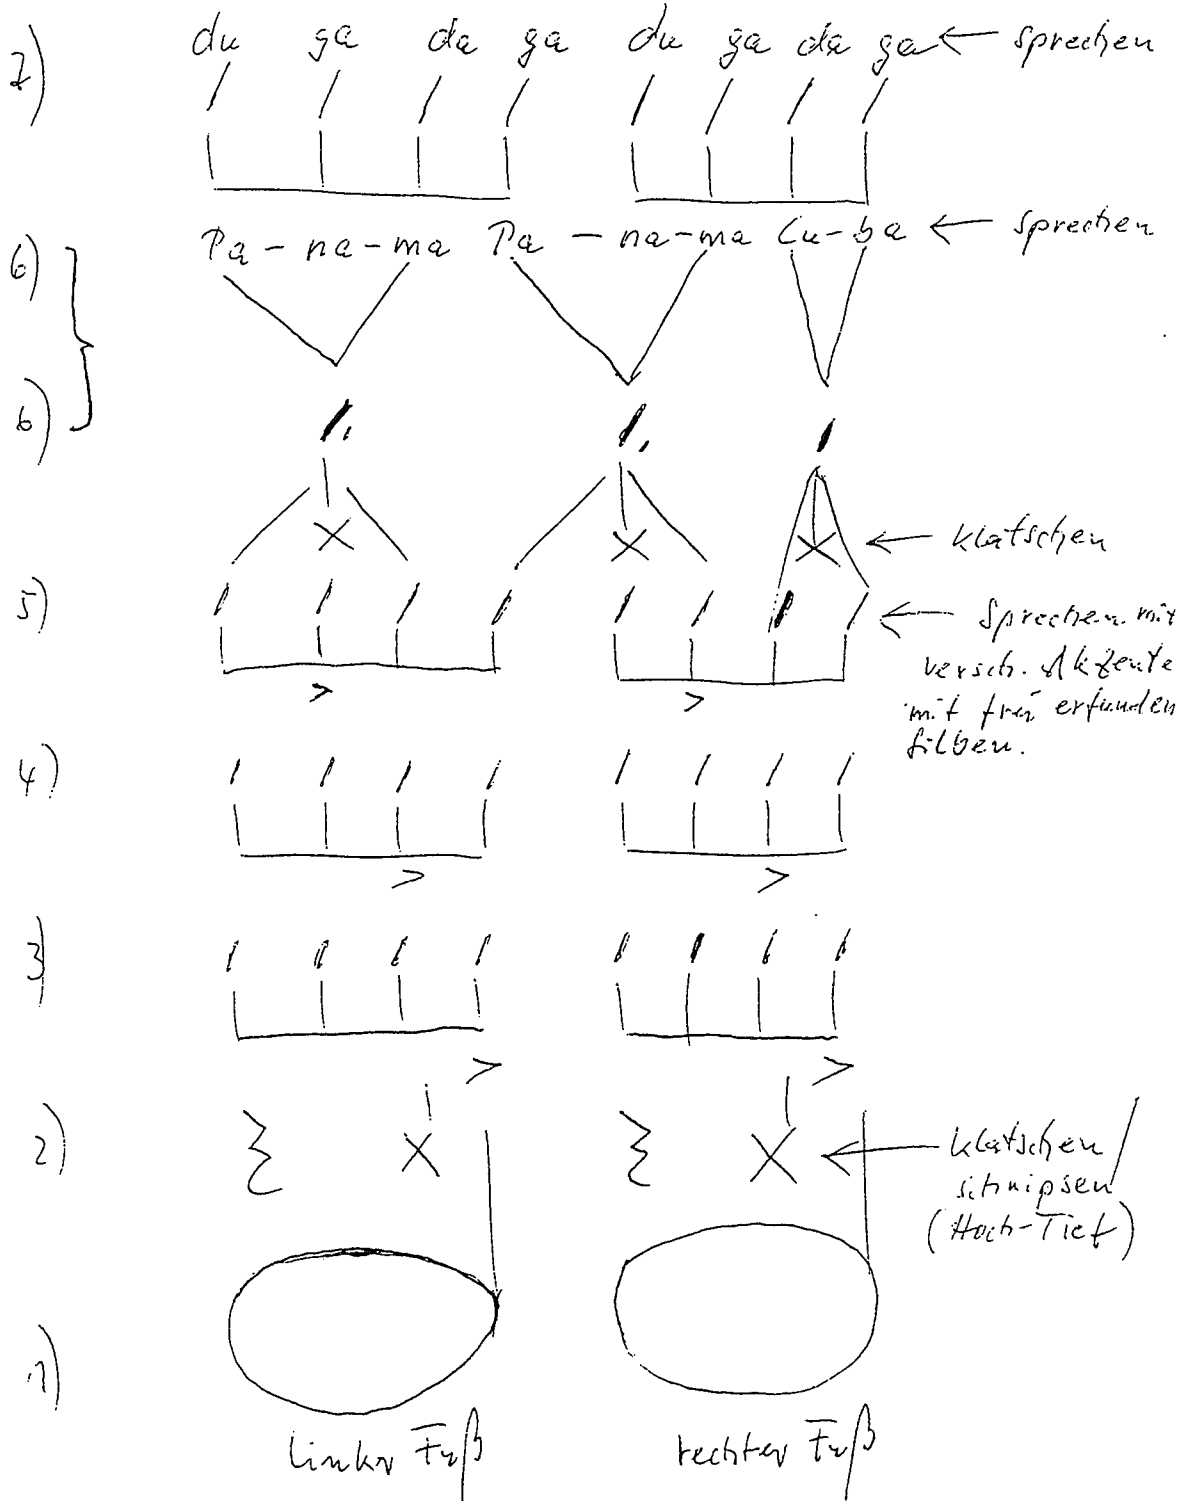 7) du ga da ga du ga da ga ← sprechen
6) Pa-na-ma Pa-na-ma Cu-ba ← sprechen
6)
X X X ← klatschen
5) ← Sprechen mit
versch. Akzente
mit frei erfunden
Silben.
> >
4)
> >
3)
> >
2) X X ← klatschen /
schnipsen
(Hoch-Tief)
1)
linker Fuß rechter Fuß